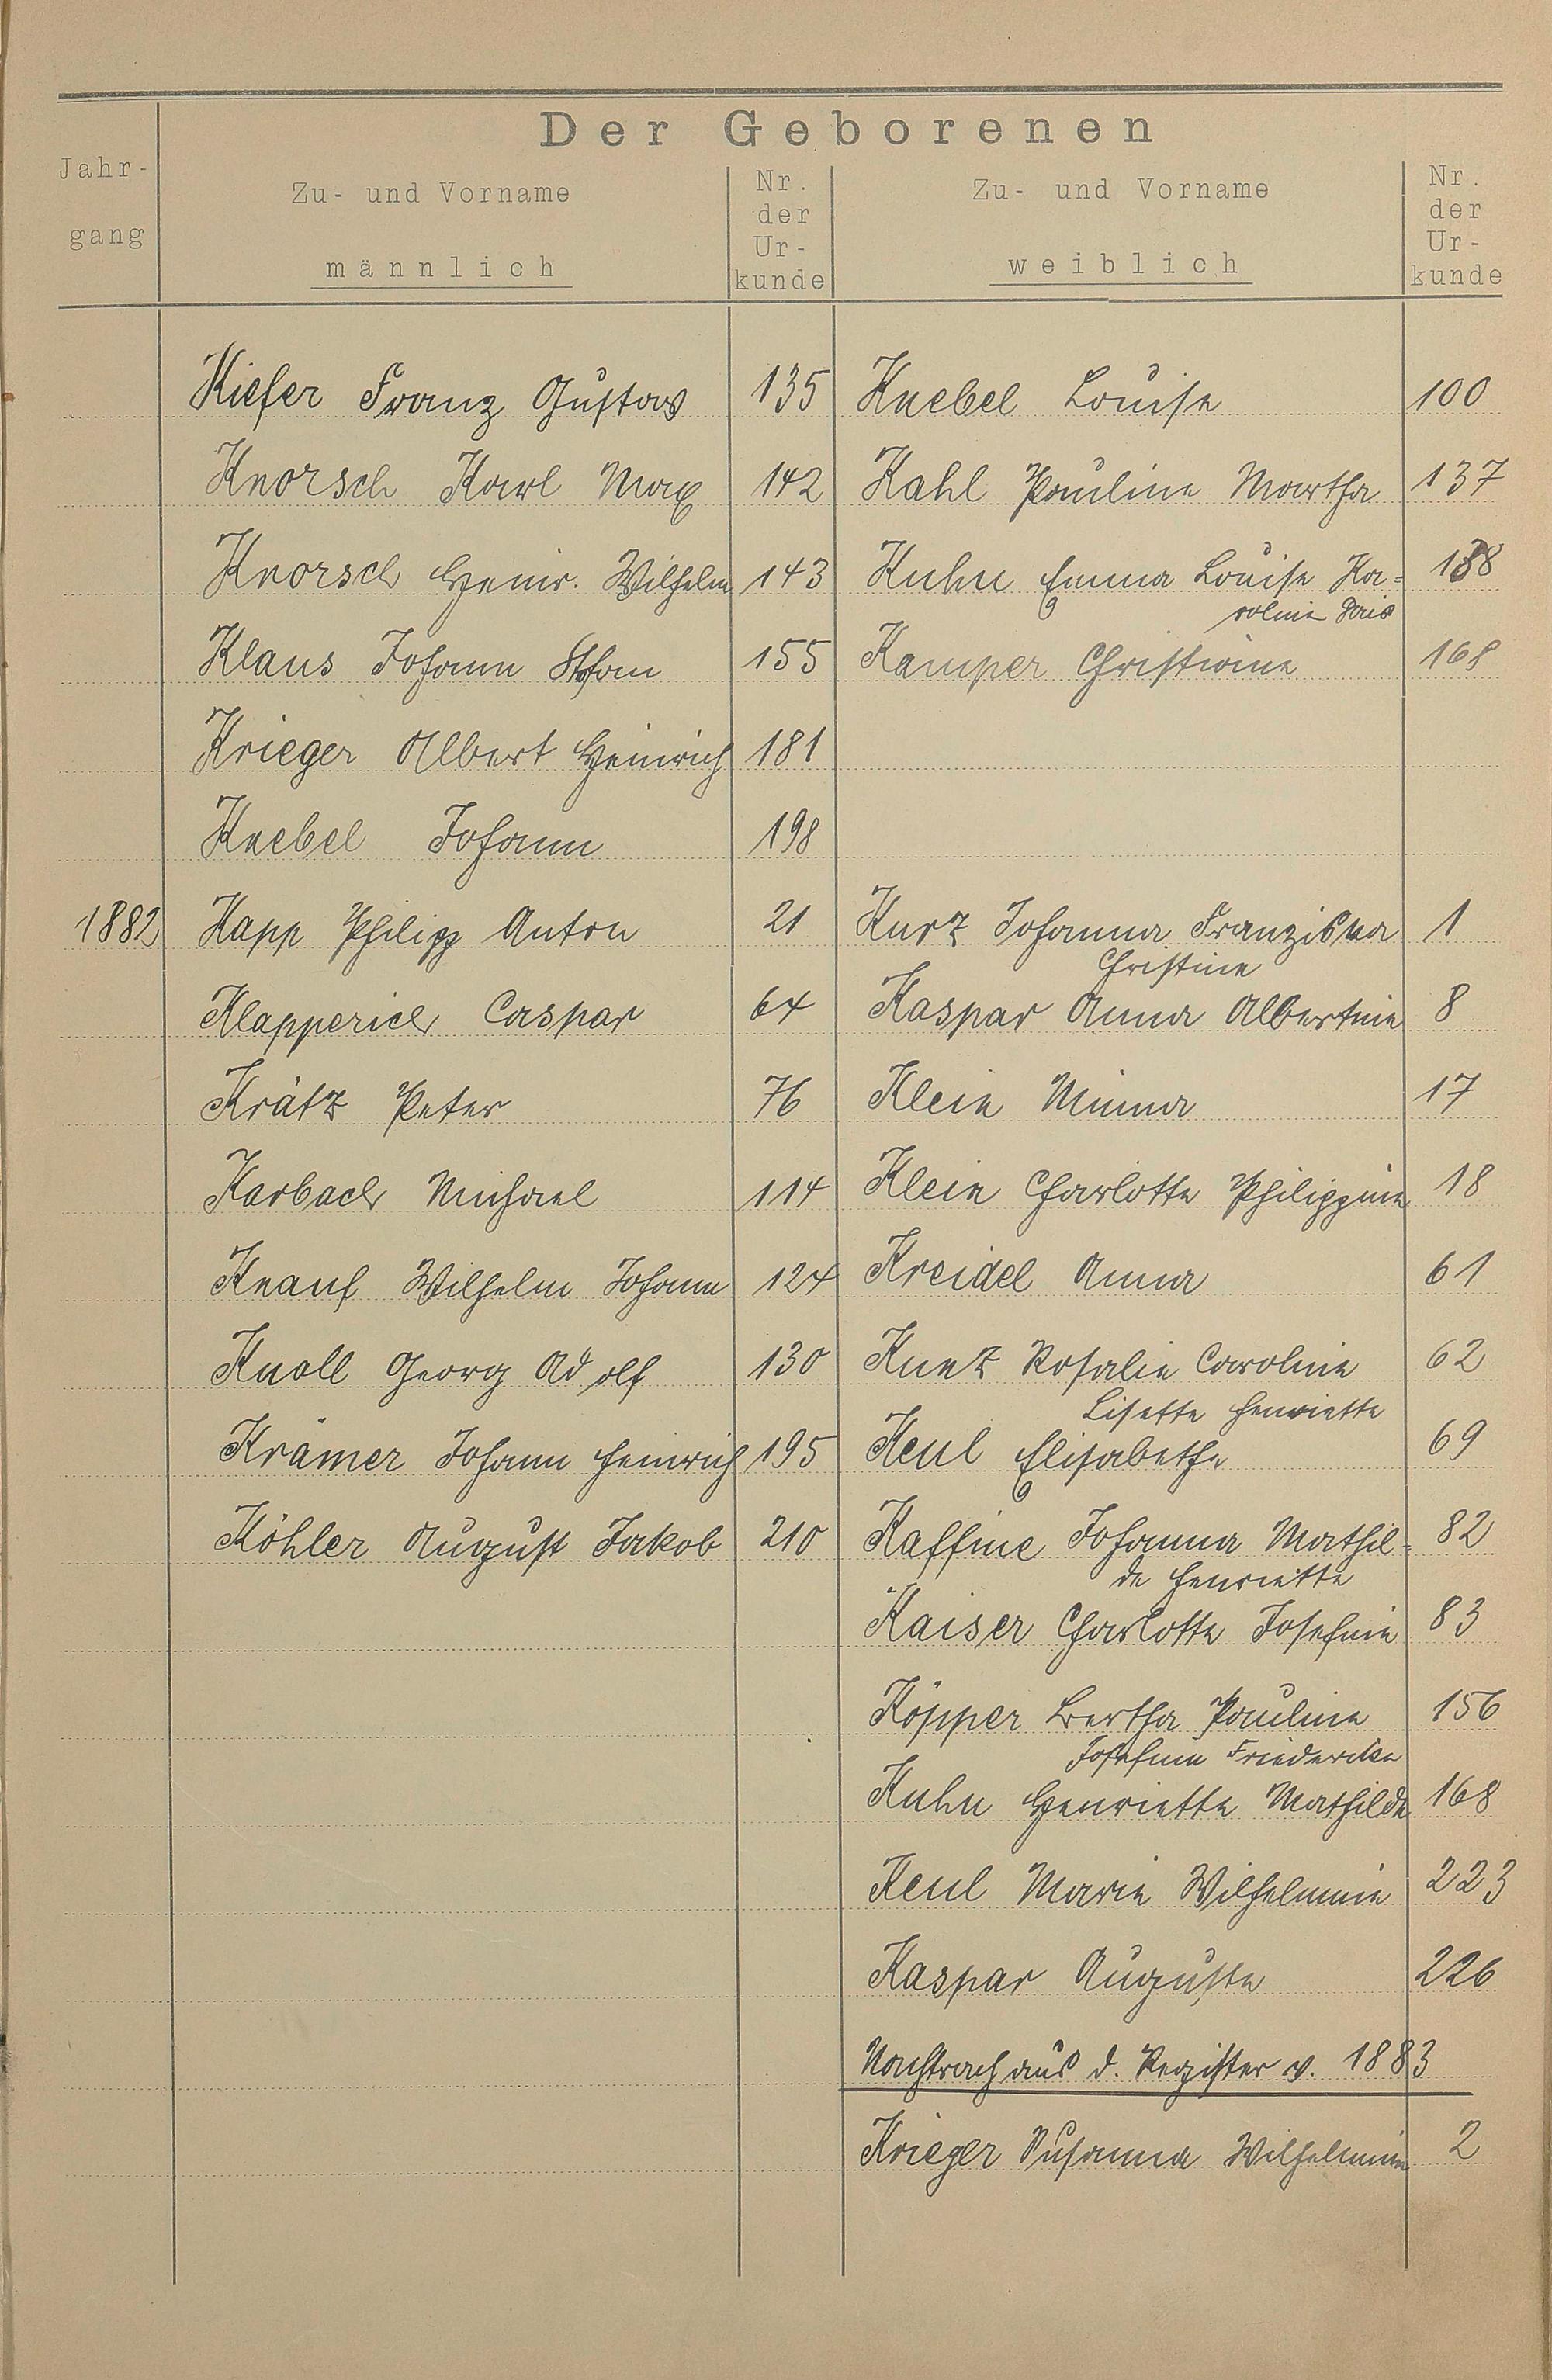 Der Geborenen
Jahr-
gang
Zu- und Vorname
männlich
Nr.
der
Ur-
kunde
Zu- und Vorname
weiblich
Nr.
der
Ur-
kunde
Kiefer Franz Gustav 135 Knebel Louise 100
Knorsch Karl Max 142 Kahl Pauline Martha 137
Knorsch Heinr. Wilhelm 143 Kuhn Emma Louise Ka= 138
roline
Klaus Johann 155 Kamper Christiane 168
Krieger Albert Heinrich 181
Knebel Johann 198
1882 Kapp Philipp Anton 21 Kurz Johanna Franziska 1
Christine
Klapperich Caspar 64 Kaspar Anna Albertine 8
Krätz Peter 76 Klein Minna 17
Karbach Michael 114 Klein Charlotte Philippine 18
Knauf Wilhelm Johann 124 Kreidel Anna 61
Knoll Georg Adolf 130 Kunz Rosalie Caroline 62
Lisette Henriette
Krämer Johann Heinrich 195 Keul Elisabethe 69
Köhler August Jakob 210 Kaffine Johanna Mathil= 82
de Henriette
Kaiser Charlotte Josefine 83
Köpper Bertha Pauline 156
Josefine Friedericke
Kuhn Henriette Mathilde 168
Keul Marie Wilhelmine 223
Kaspar Auguste 226
Nachtrach aus d. Register v. 1883
Krieger Susanna Wilhelmine 2